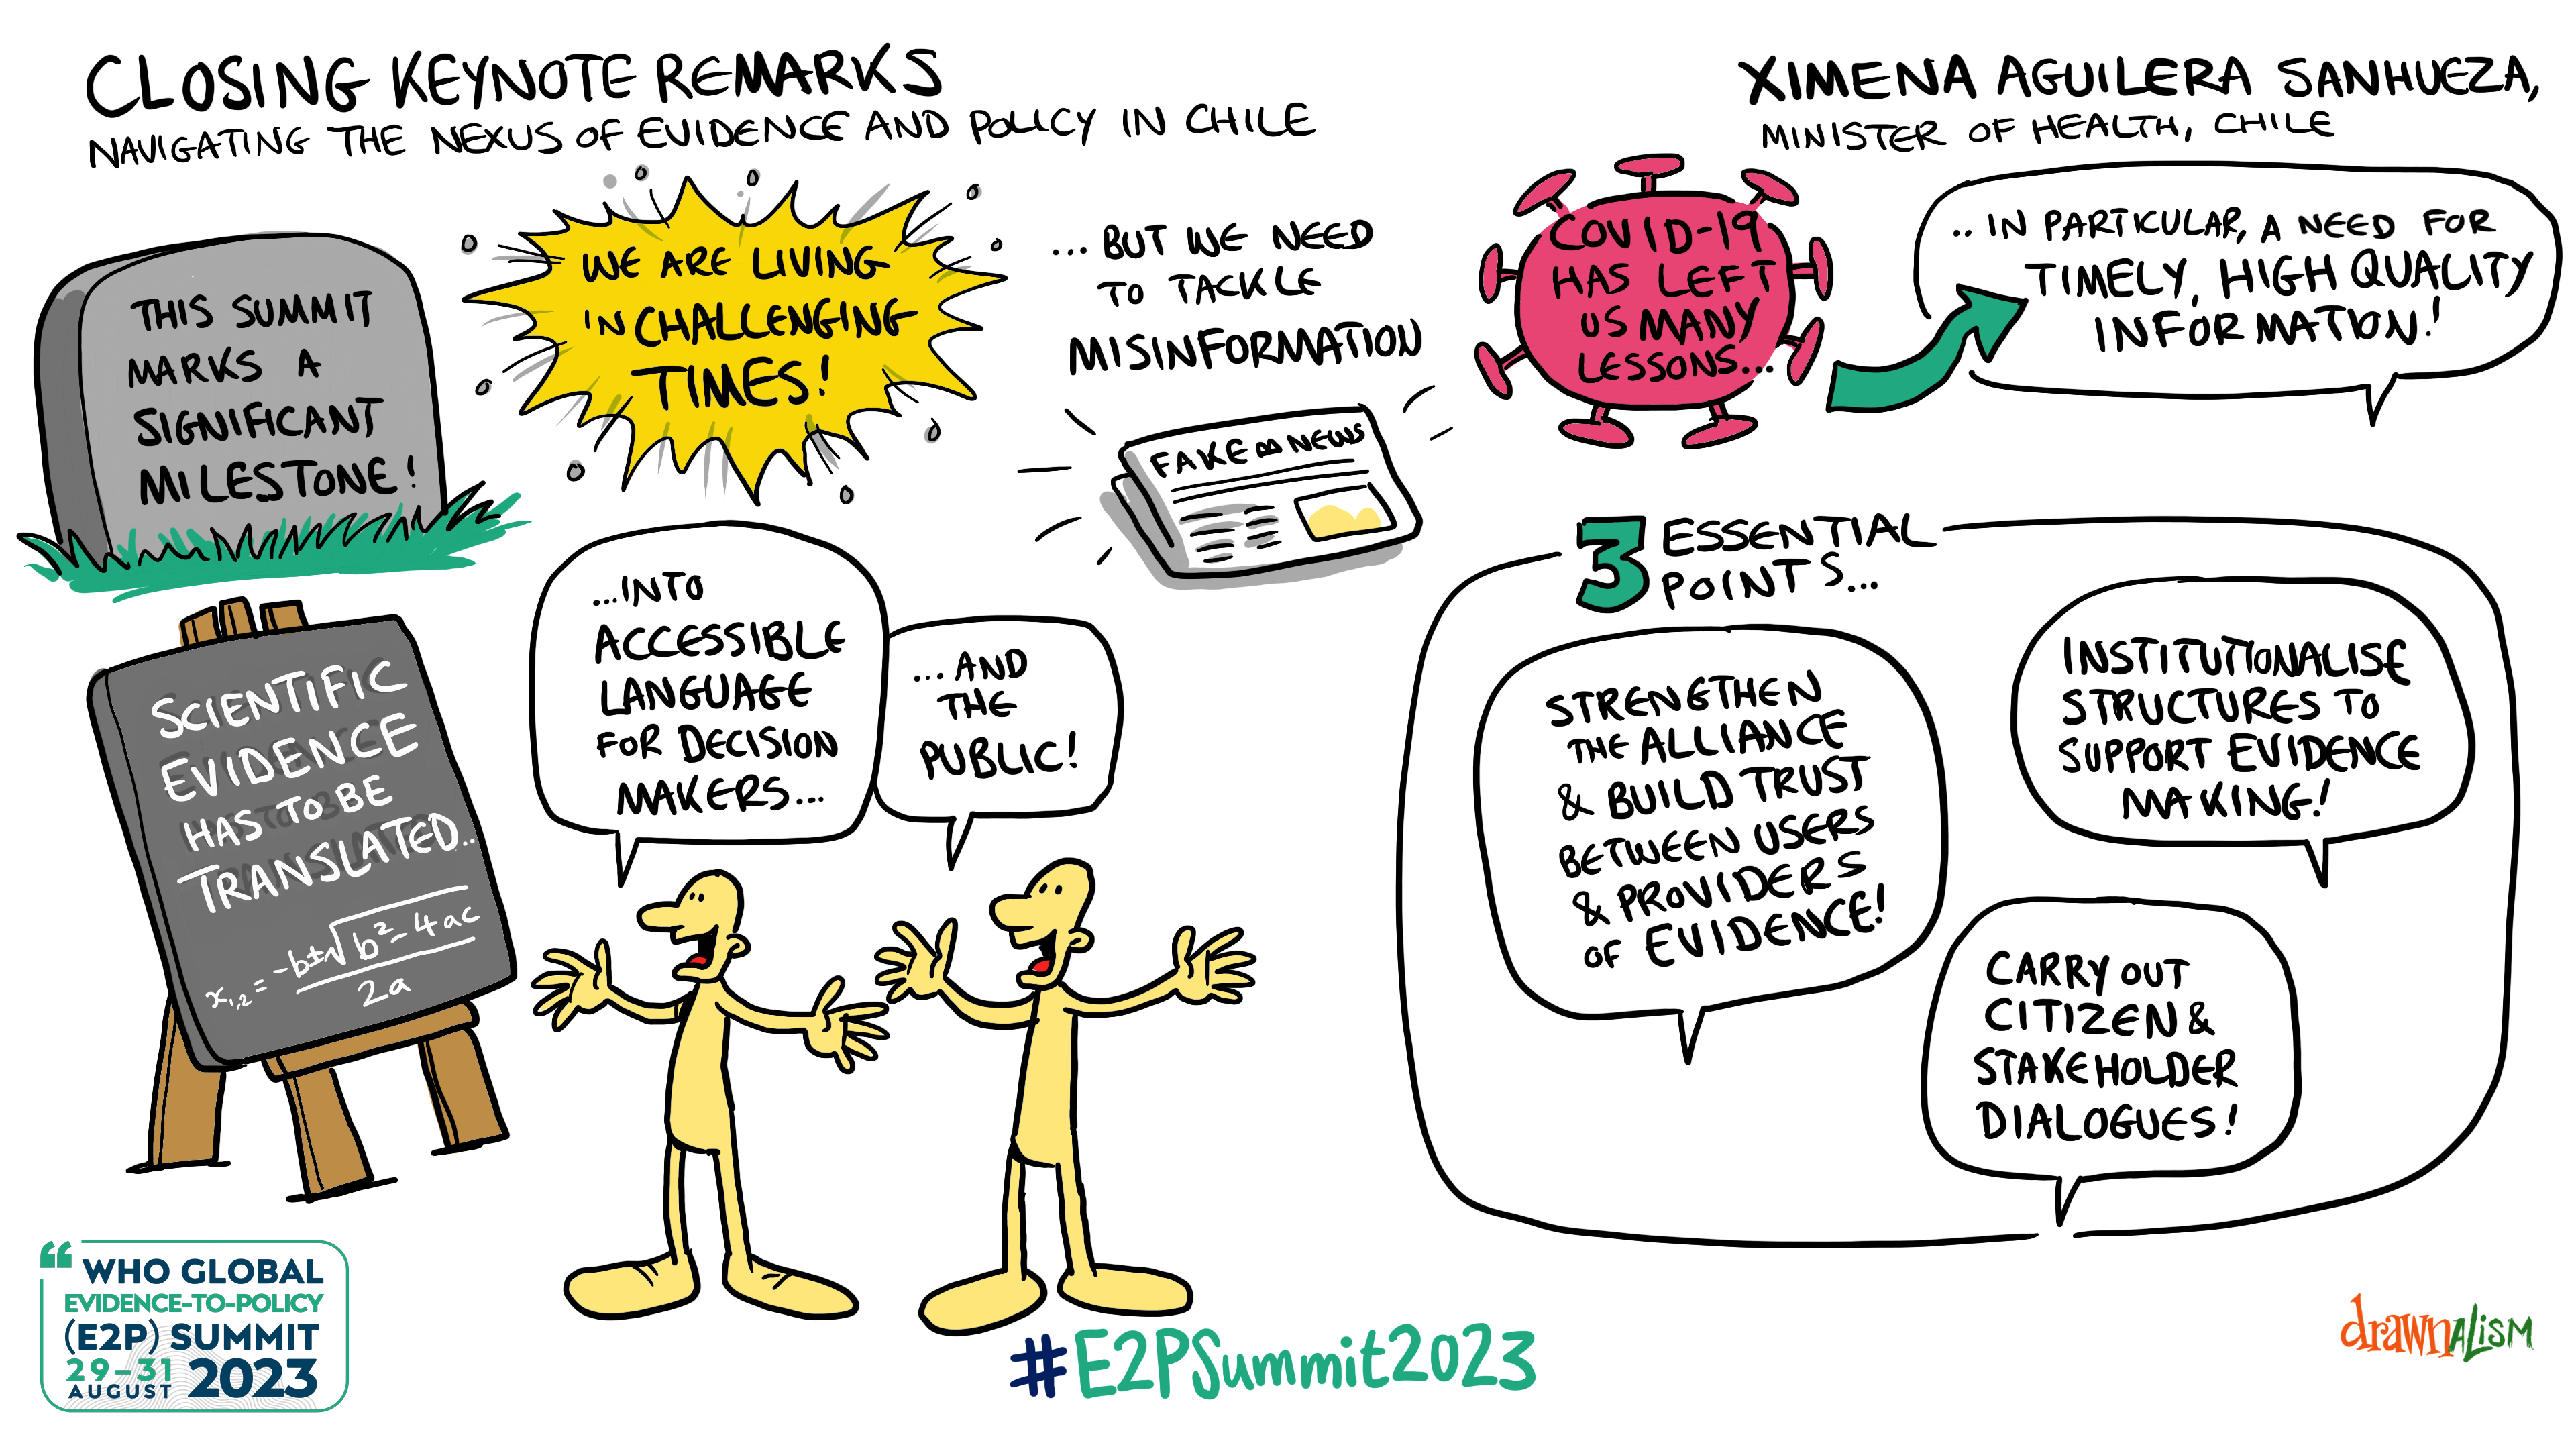 CLOSING KEYNOTE REMARKS
NAVIGATING THE NEXUS OF EVIDENCE AND POLICY IN CHILE
XIMENA AGUILERA SANHUEZA,
MINISTER OF HEALTH, CHILE
THIS SUMMIT
MARKS A
SIGNIFICANT
MILESTONE!
WE ARE LIVING
IN CHALLENGING
TIMES!
...BUT WE NEED
TO TACKLE
MISINFORMATION
FAKE NEWS
COVID-19
HAS LEFT
US MANY
LESSONS...
..IN PARTICULAR, A NEED FOR
TIMELY, HIGH QUALITY
INFORMATION!
SCIENTIFIC
EVIDENCE
HAS TO BE
TRANSLATED..
x₁,₂ = -b±√b²-4ac
2a
...INTO
ACCESSIBLE
LANGUAGE
FOR DECISION
MAKERS...
...AND
THE
PUBLIC!
3 ESSENTIAL
POINTS...
STRENGTHEN
THE ALLIANCE
& BUILD TRUST
BETWEEN USERS
& PROVIDERS
OF EVIDENCE!
INSTITUTIONALISE
STRUCTURES TO
SUPPORT EVIDENCE
MAKING!
CARRY OUT
CITIZEN &
STAKEHOLDER
DIALOGUES!
“ WHO GLOBAL
EVIDENCE-TO-POLICY
(E2P) SUMMIT
29–31
AUGUST 2023
#E2PSummit2023
drawnALiSM